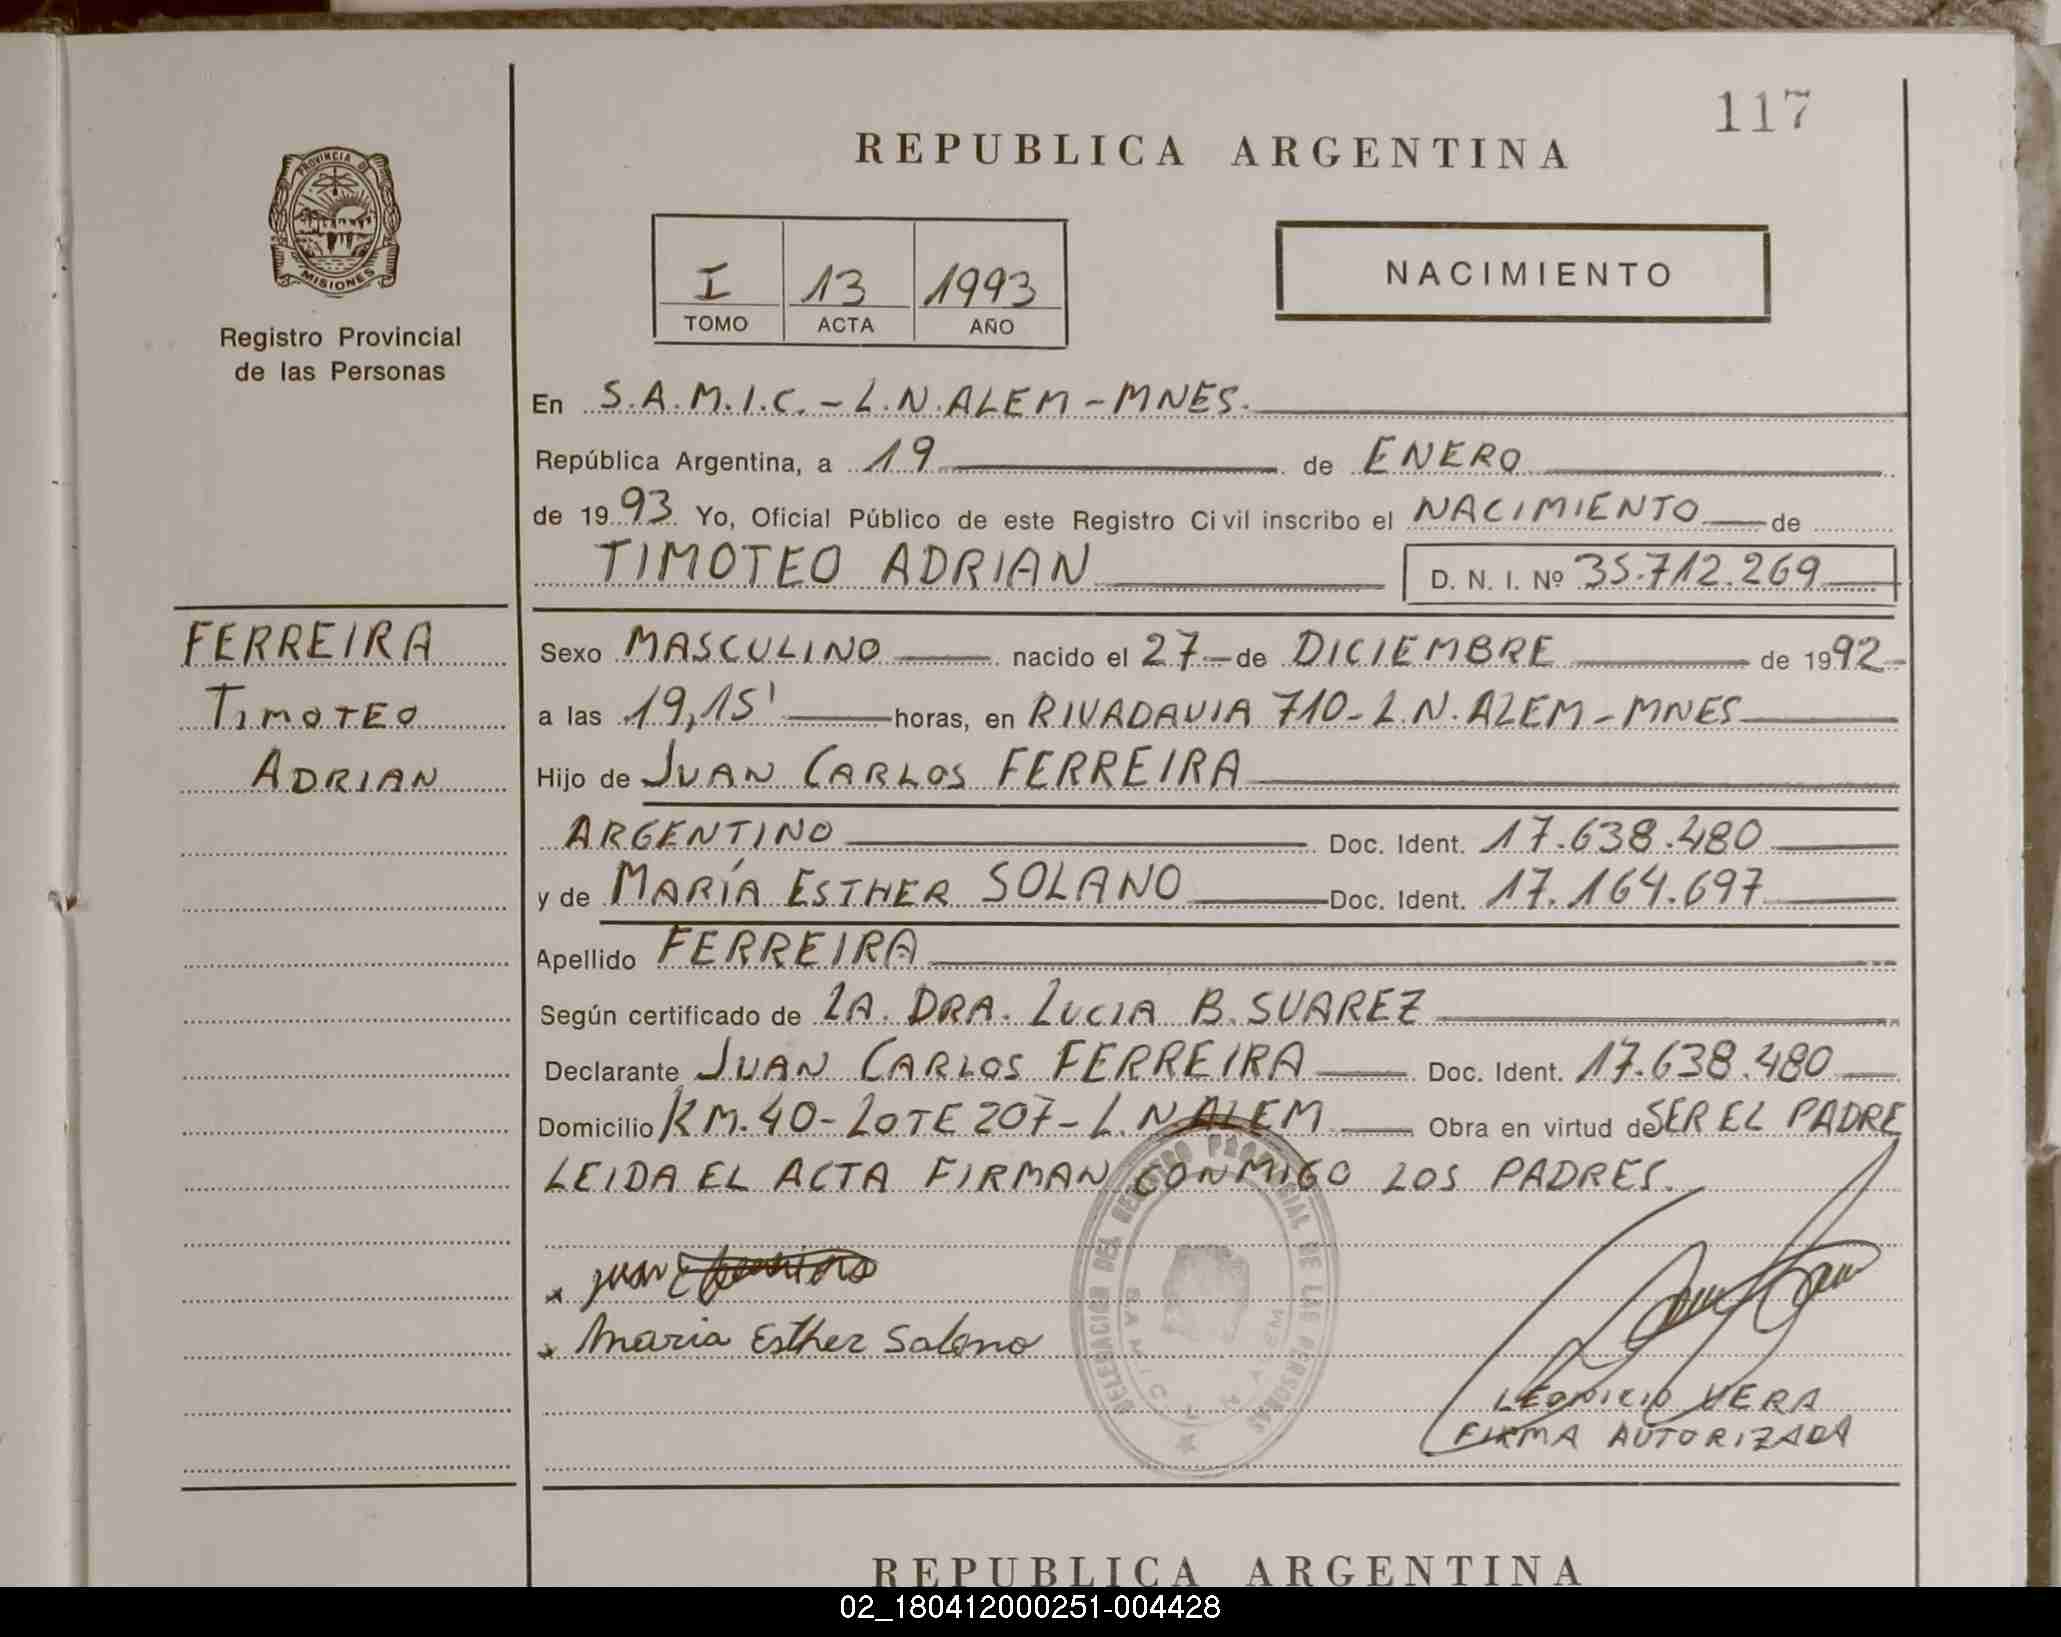 117
REPUBLICA ARGENTINA
PROVINCIA DE
MISIONES
Registro Provincial
de las Personas
I 13 1993
TOMO ACTA AÑO
NACIMIENTO
En S.A.M.I.C. - L.N. ALEM - MNES.
República Argentina, a 19 de ENERO
de 1993 Yo, Oficial Público de este Registro Civil inscribo el NACIMIENTO de
TIMOTEO ADRIAN D. N. I. Nº 35.712.269
FERREIRA
TIMOTEO
ADRIAN
Sexo MASCULINO nacido el 27 de DICIEMBRE de 1992
a las 19,15' horas, en RIVADAVIA 710 - L.N. ALEM - MNES
Hijo de JUAN CARLOS FERREIRA
ARGENTINO Doc. Ident. 17.638.480
y de MARÍA ESTHER SOLANO Doc. Ident. 17.164.697
Apellido FERREIRA
Según certificado de LA. DRA. LUCIA B. SUAREZ
Declarante JUAN CARLOS FERREIRA Doc. Ident. 17.638.480
Domicilio KM. 40 - LOTE 207 - L. N ALEM Obra en virtud de SER EL PADRE
LEIDA EL ACTA FIRMAN CONMIGO LOS PADRES.
x juan
x Maria Esther Solano
DELEGACION DEL REGISTRO PROVINCIAL DE LAS PERSONAS
S.A.M.I.C. L. N. ALEM
LEONICIO VERA
FIRMA AUTORIZADA
REPUBLICA ARGENTINA
02_180412000251-004428